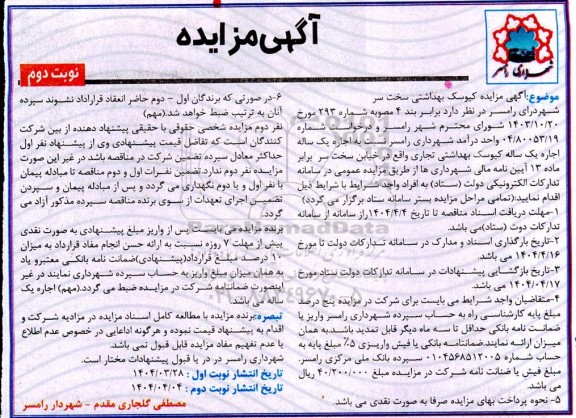 آگهی مزایده
نوبت دوم
شهرداری رامسر
موضوع: آگهی مزایده کیوسک بهداشتی سخت سر
شهردرای رامسر در نظر دارد برابر بند ۴ مصوبه شماره ۲۹۳ مورخ
۱۴۰۳/۱۰/۲۰ شورای محترم شهر رامسر و درخواست شماره
۰۴/۸۰۰۵۳/۱۹ واحد درآمد شهرداری رامسر نسبت به اجاره یک ساله
اجاره یک ساله کیوسک بهداشتی تجاری واقع در خیابن سخت سر برابر
ماده ۱۳ آیین نامه مالی شهرداری ها از طریق مزایده عمومی در سامانه
تدارکات الکترونیکی دولت (ستاد) به افراد واجد شرایط با شرایط ذیل
اقدام نمایید:(تمامی مراحل مزایده بستر سامانه ستاد برگزار می گردد)
۱-مهلت دریافت اسناد مناقصه تا تاریخ ۱۴۰۴/۴/۴از سامانه از سامانه
تدارکات دوت (ستاد)می باشد.
۲-تاریخ بارگذاری اسناد و مدارک در سامانه تدارکات دولت تا مورخ
۱۴۰۴/۴/۱۶ می باشد.
۳-تاریخ بازگشایی پیشنهادات در سامانه تدارکات دولت ستاد مورخ
۱۴۰۴/۰۴/۱۷ می باشد.
۴-متقاضیان واجد شرایط می بایست برای شرکت در مزایده پنج درصد
مبلغ پایه کارشناسی راه به حساب سپرده شهرداری رامسر واریز یا
ضمانت نامه بانکی حداقل تا سه ماه دیگر قابل تمدید باشد.به همان
میزان ارائه نمایند.ضمانتنامه بانکی یا فیش واریزی ۵٪ مبلغ پایه به
حساب شماره ۰۱۰۴۵۶۸۵۱۲۰۰۵ سپرده بانک ملی مرکزی رامسر.
مبلغ فیش یا ضنانت نامه شرکت در مزایده مبلغ ۴۰/۲۰۰/۰۰۰ ریال
می باشد.
۵- نحوه پرداخت بهای مزایده صرفا به صورت نقدی می باشد.
۶-در صورتی که برندگان اول - دوم حاضر انعقاد قراراداد نشوند سپرده
آنان به ترتیب ضبط خواهد شد.(مهم)
نفر دوم مزایده شخصی حقوقی با حقیقی پیشنهاد دهنده از بین شرکت
کنندگان است که تفاضل قیمت پیشنهادی وی از پیشنهاد نفر اول
حداکثر معادل سپرده تضمین شرکت در مناقصه باشد در غیر این صورت
مزایده نفر دوم ندارد.تضمین نفرات اول و دوم مناقصه تا مبادله پیمان
با نفر اول و یا دوم نگهداری می گردد و پس از مبادله پیمان و سپردن
تضمین اجرای تعهدات از سوی برنده مناقصه سپرده مذکور آزاد می
گردد.
برنده مزایده می بایست پس از واریز مبلغ پیشنهادی به صورت نقدی
پیش از مهلت ۷ روزه نسبت به ارائه حسن انجام مفاد قرارداد به میزان
۱۰ درصد مبلغ قرارداد(پیشنهادی)ضمانت نامه بانکی معتبرو یاد
به همان میزان مبلغ واریز به حساب سپرده شهرداری نمایند در غیر
اینصورت ضمانتنامه شرکت در مزایده ضبط می گردد.(مهم) اجاره یک
ساله می باشد
تبصره:برنده مزایده با مطالعه کامل اسناد مزایده در مزادیه شرکت و
اقدام به پیشنهاد قیمت نموده و هرگونه ادعایی در خصوص عدم اطلاع
یا عدم تفهیم مفاد مزایده قابل قبول نمی باشد.
شهرداری رامسر در در یا قبول پیشنهادات مختار است.
تاریخ انتشار نوبت اول : ۱۴۰۴/۰۳/۲۸
تاریخ انتشار نوبت دوم : ۱۴۰۴/۰۴/۰۴
مصطفی گلجاری مقدم - شهردار رامسر